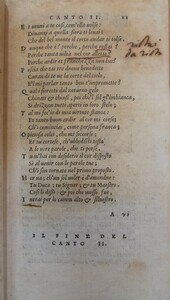 CANTO II.
E venni a te così, com'ella volse:
Dinanzi a quella fiera ti levai;
Che del bel monte il corto andar ti tolse.
Dunque che è? perche, perche restai?
Perche tanta viltà nel cor allette?
Perche ardir et franchezza non hai?
Poscia che tai tre donne benedette
Curan di te ne la corte del cielo,
E'l mio parlar tanto ben t'impromette?
Quai fioretti dal notturno gelo
Chinati & chiusi, poi che'l sol gl'imbianca,
Si drizzan tutti aperti in loro stelo;
Tal mi fec'io di mia virtute stanca:
Et tanto buon ardir al cor mi corse;
Ch'i cominciai, come persona franca:
O pietosa colei, che mi soccorse;
Et tu cortese, ch'ubbidisti tosto
A le vere parole, che ti porse.
Tu m'hai con desiderio il cor disposto
Si al venir con le parole tue;
Ch'i son tornato nel primo proposto.
Hor va; ch'un sol voler è d'amendue:
Tu Duca, tu Signor, & tu Maestro:
Cosi li dissi; et poi che mosso fue,
Intrai per lo camin alto & silvestro.
A vi
IL FINE DEL
CANTO II.